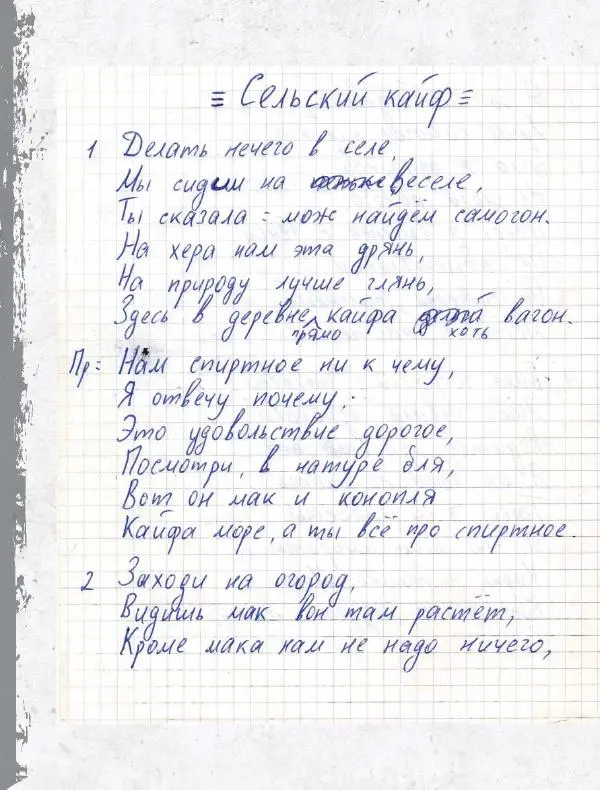 = Сельский кайф =
1 Делать нечего в селе,
Мы сидим на веселе,
Ты сказала: мож найдём самогон.
На хера нам эта дрянь,
На природу лучше глянь,
Здесь в деревне прямо кайфа хоть вагон.
Пр: Нам спиртное ни к чему,
Я отвечу почему:
Это удовольствие дорогое,
Посмотри, в натуре бля,
Вот он мак и конопля
Кайфа море, а ты всё про спиртное.
2 Заходи на огород,
Видишь мак вон там растёт,
Кроме мака нам не надо ничего,